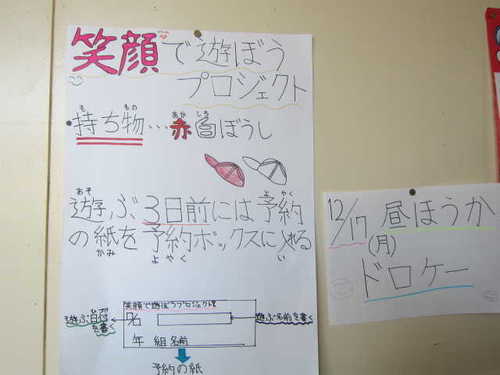 笑顔で遊ぼう
プロジェクト
持ち物…赤白ぼうし
遊ぶ3日前には予約
の紙を予約ボックスに入れる
笑顔で遊ぼうプロジェクト
遊ぶ日付を書く
年 組 名前
予約の紙
12/17
(月)
昼ほうか
ドロケー